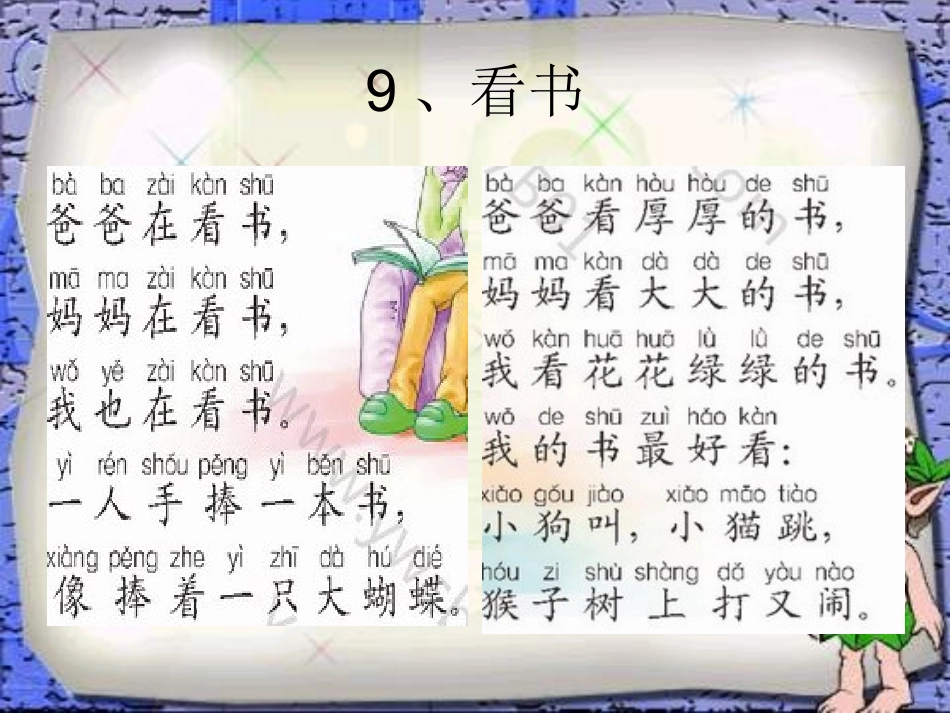 9、看书
bà ba zài kàn shū
爸爸在看书，
mā ma zài kàn shū
妈妈在看书，
wǒ yě zài kàn shū
我也在看书。
yì rén shǒu pěng yì běn shū
一人手捧一本书，
xiàng pěng zhe yì zhī dà hú dié
像捧着一只大蝴蝶。
bà ba kàn hòu hòu de shū
爸爸看厚厚的书，
mā ma kàn dà dà de shū
妈妈看大大的书，
wǒ kàn huā huā lǜ lǜ de shū
我看花花绿绿的书。
wǒ de shū zuì hǎo kàn
我的书最好看：
xiǎo gǒu jiào xiǎo māo tiào
小狗叫，小猫跳，
hóu zi shù shàng dǎ yòu nào
猴子树上打又闹。